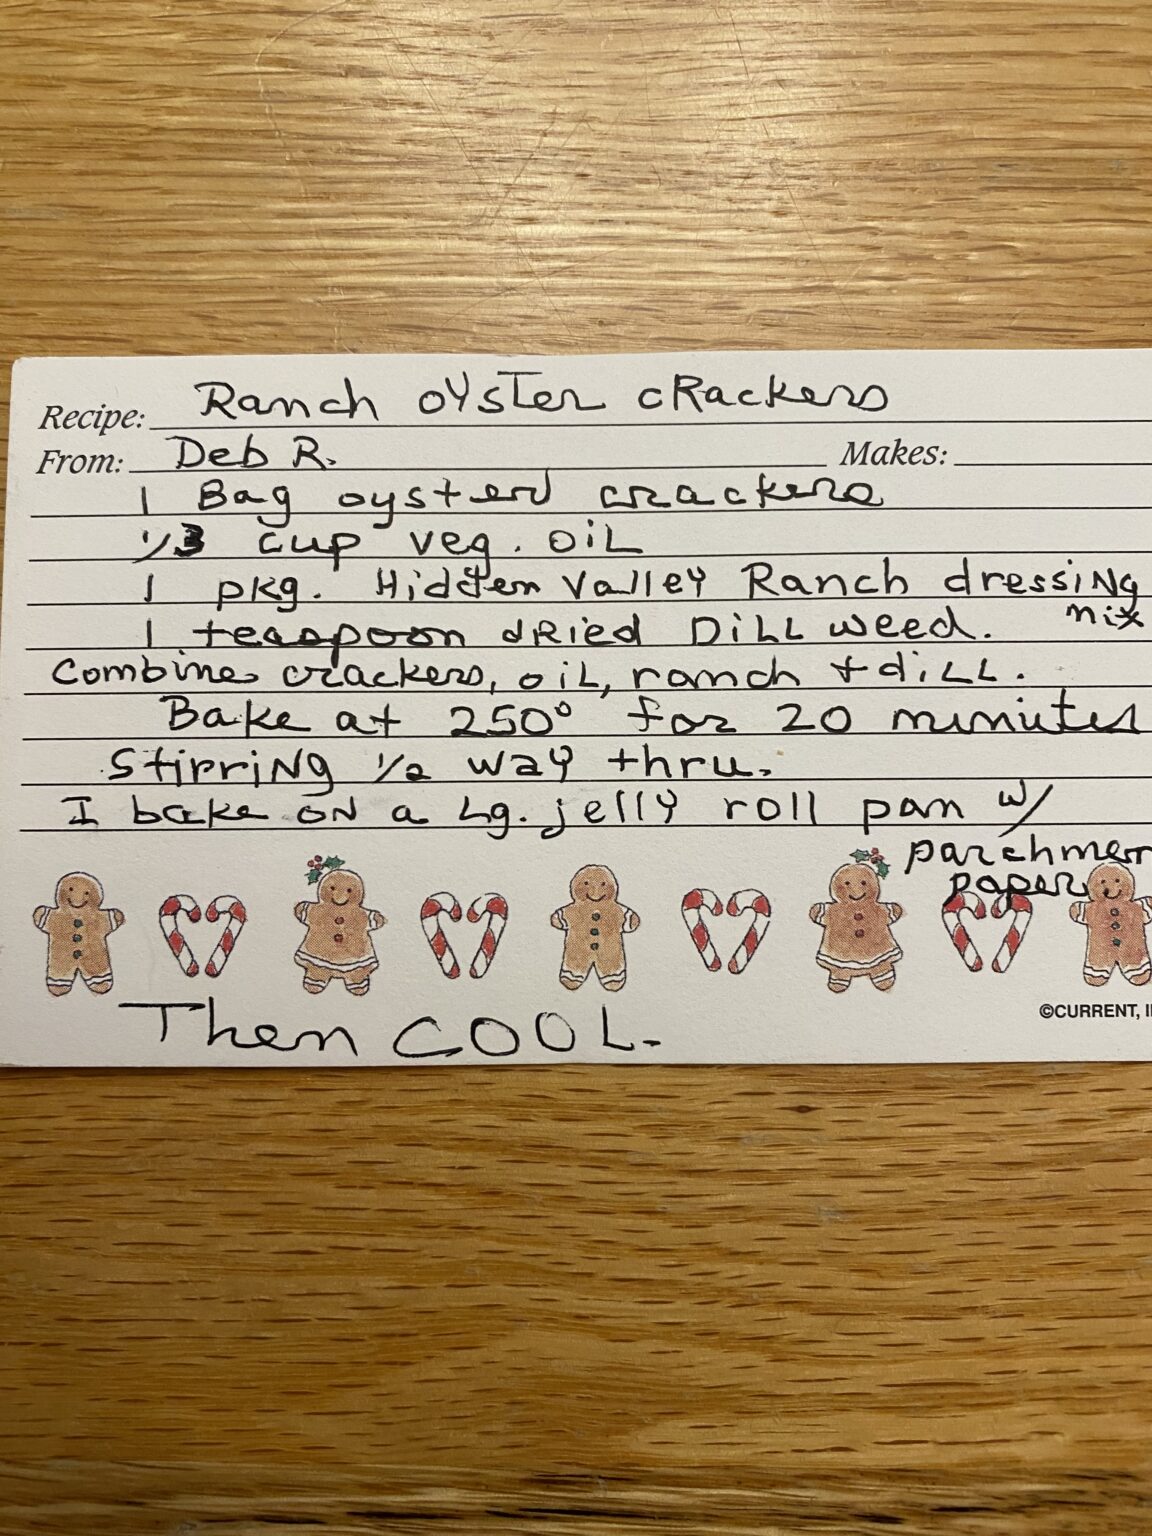 Recipe: Ranch oyster crackers
From: Deb R. Makes:
1 Bag oyster crackers
1/3 cup veg. oil
1 pkg. Hidden Valley Ranch dressing
mix
1 teaspoon dried Dill weed.
Combine crackers, oil, ranch + dill.
Bake at 250° for 20 minutes
Stirring 1/2 way thru.
I bake on a Lg. jelly roll pan w/
parchmen
paper
©CURRENT, I
Then COOL.